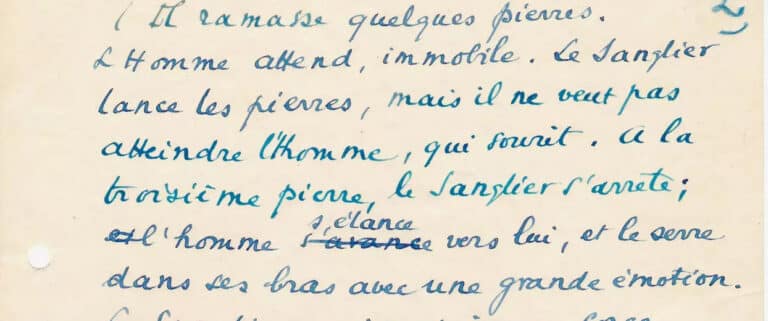 2)
( Il ramasse quelques pierres.
L'Homme attend, immobile. Le Sanglier
lance les pierres, mais il ne veut pas
atteindre l'homme, qui sourit. A la
troisième pierre, le Sanglier s'arrete;
s'élance
et l'homme s'avance vers lui, et le serre
dans ses bras avec une grande émotion.